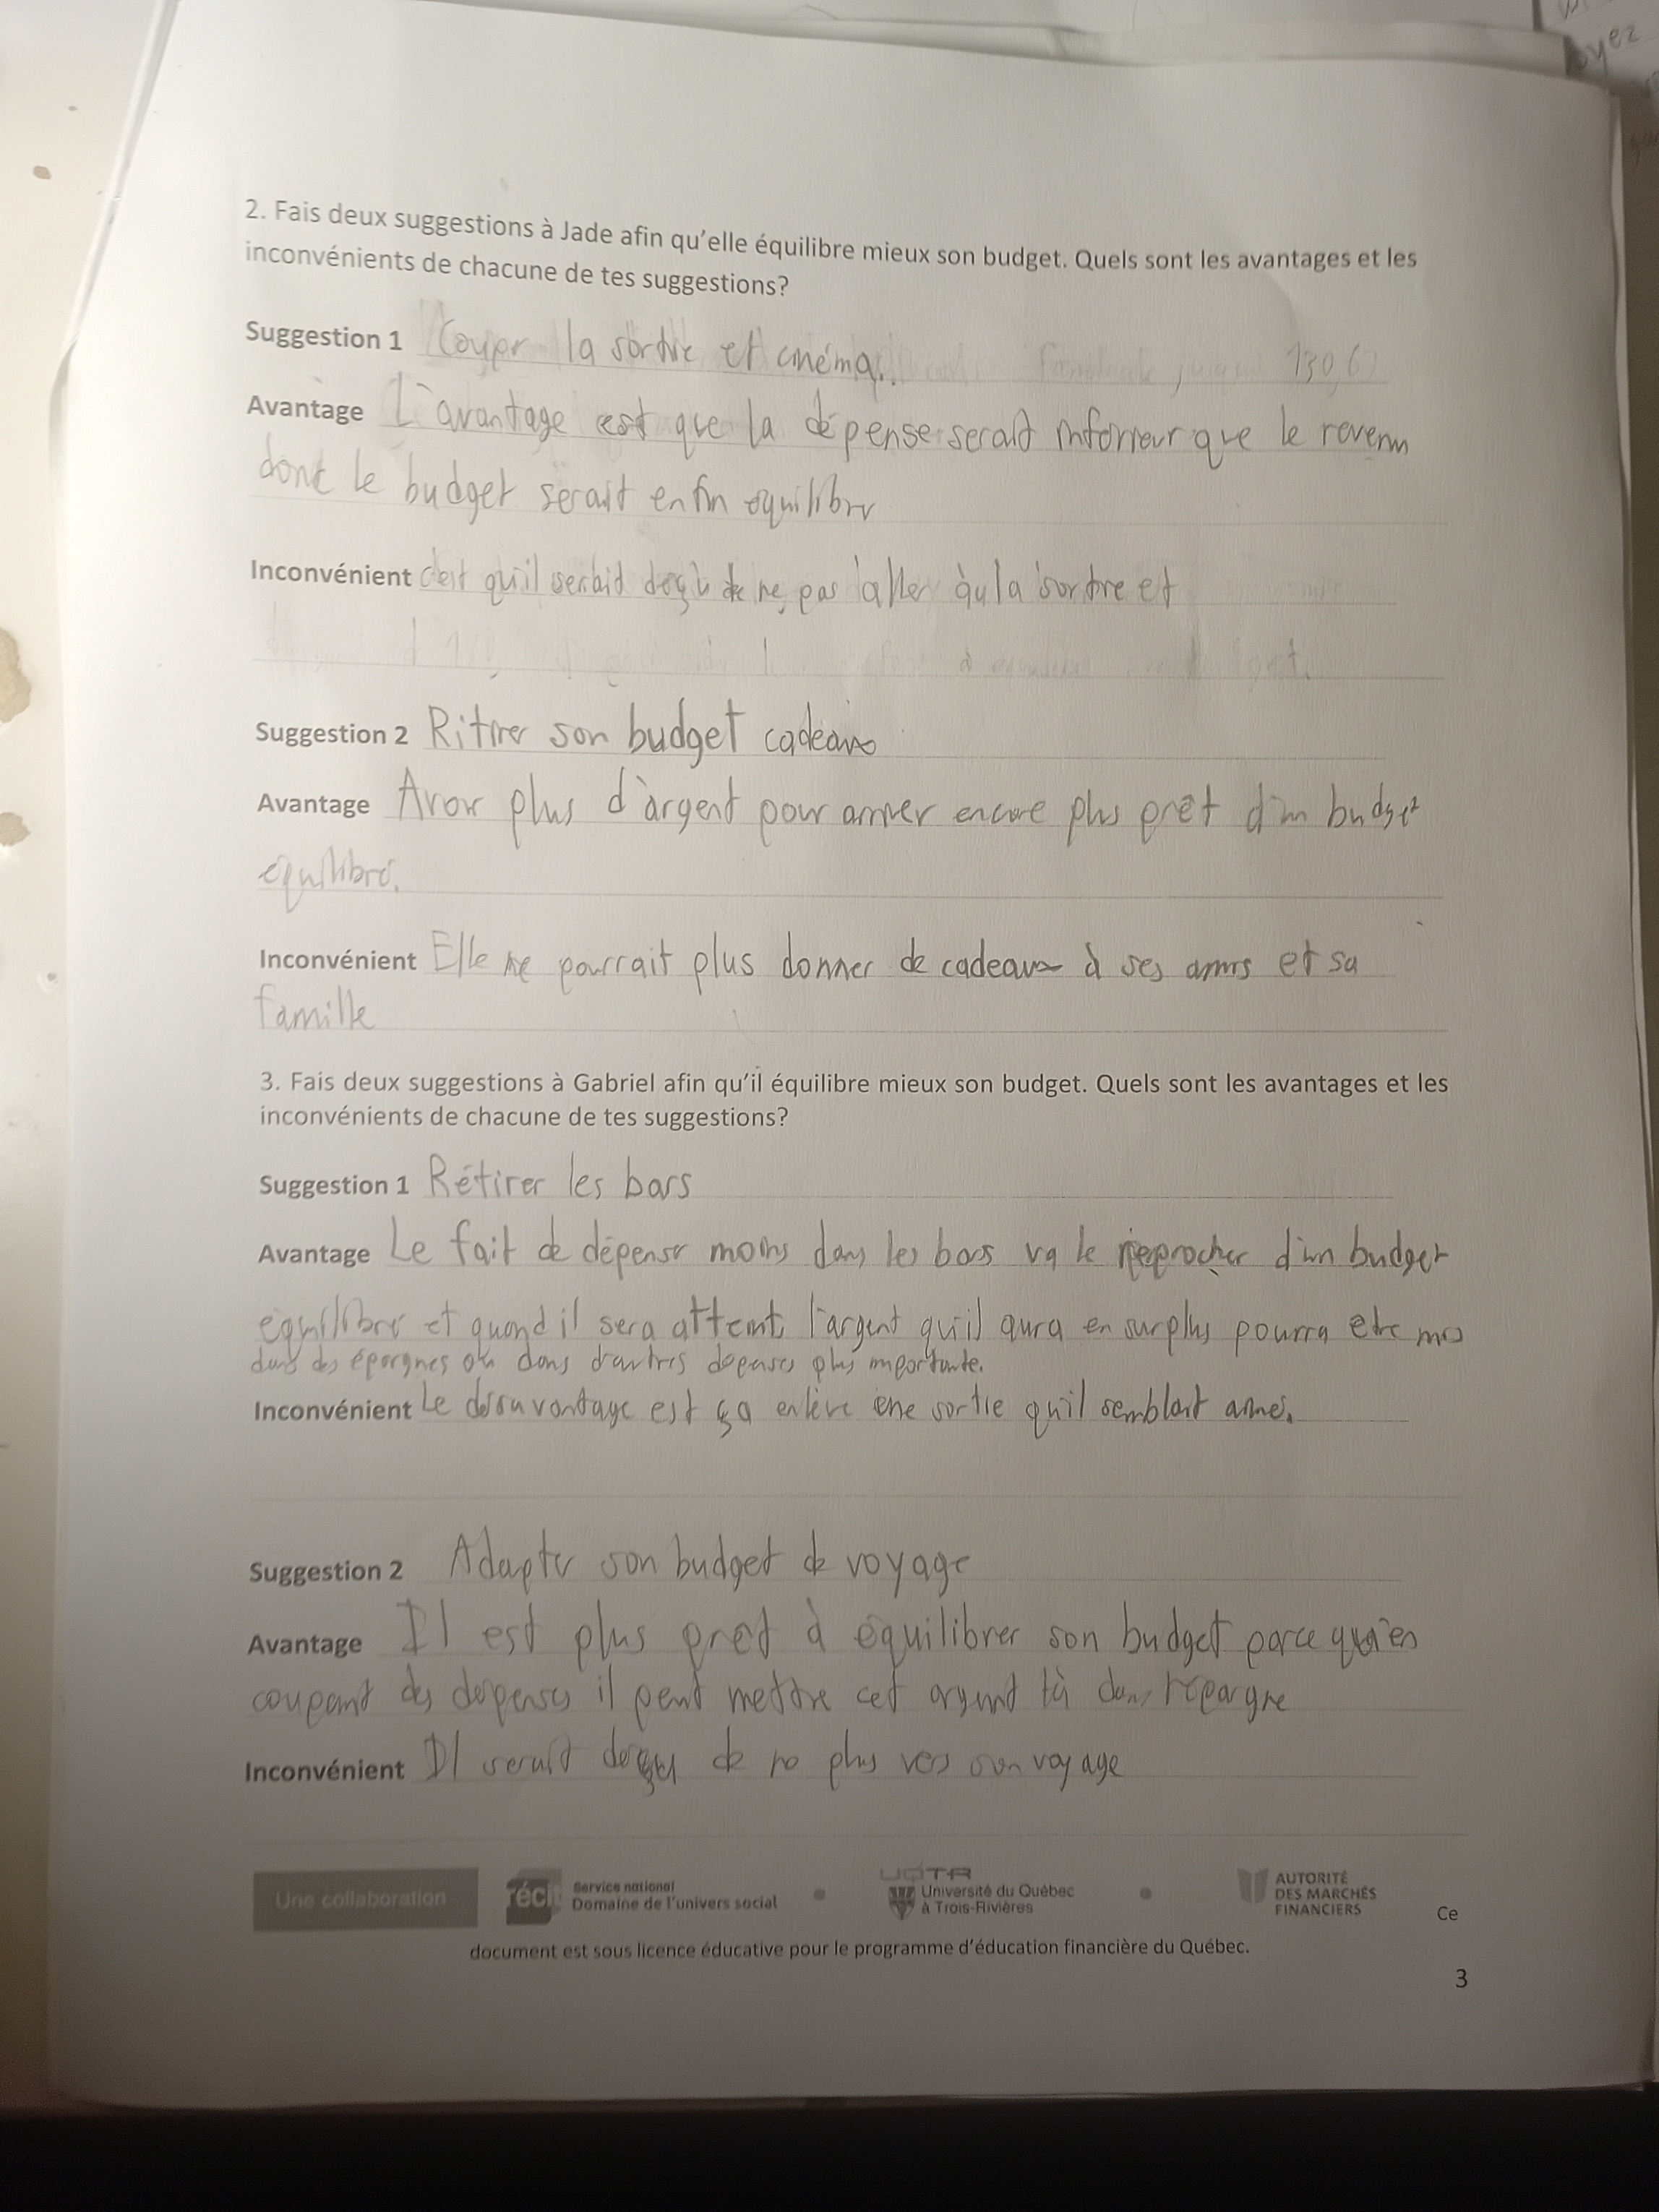 oyez
2. Fais deux suggestions à Jade afin qu'elle équilibre mieux son budget. Quels sont les avantages et les
inconvénients de chacune de tes suggestions?
Suggestion 1 Couper la sortie et cinéma. 130,6
Avantage L'avantage est que la dépense serait inférieur que le revenu
donc le budget serait enfin équilibré
Inconvénient c'est qu'il serait deçu de ne pas aller à la sortie et
Suggestion 2 Ritirer son budget cadeaux
Avantage Avoir plus d'argent pour arriver encore plus prêt d'un budget
équilibré.
Inconvénient Elle ne pourrait plus donner de cadeaux à ses amis et sa
famille
3. Fais deux suggestions à Gabriel afin qu'il équilibre mieux son budget. Quels sont les avantages et les
inconvénients de chacune de tes suggestions?
Suggestion 1 Rétirer les bars
Avantage Le fait de dépenser moins dans les bars va le rapprocher d'un budget
équilibré et quand il sera atteint, l'argent qu'il aura en surplus pourra etre mis
dans des épargnes ou dans d'autres dépenses plus importante.
Inconvénient Le désavantage est ça enlève une sortie qu'il semblait aimé.
Suggestion 2 Adapter son budget de voyage
Avantage Il est plus pret à équilibrer son budget parce qu'en
coupant des dépenses il peut mettre cet argent là dans l'épargne
Inconvénient Il serait deçu de no plus vers son voyage
Une collaboration
récit Service national
Domaine de l'univers social
UQTR
Université du Québec
à Trois-Rivières
AUTORITÉ
DES MARCHÉS
FINANCIERS
Ce
document est sous licence éducative pour le programme d'éducation financière du Québec.
3